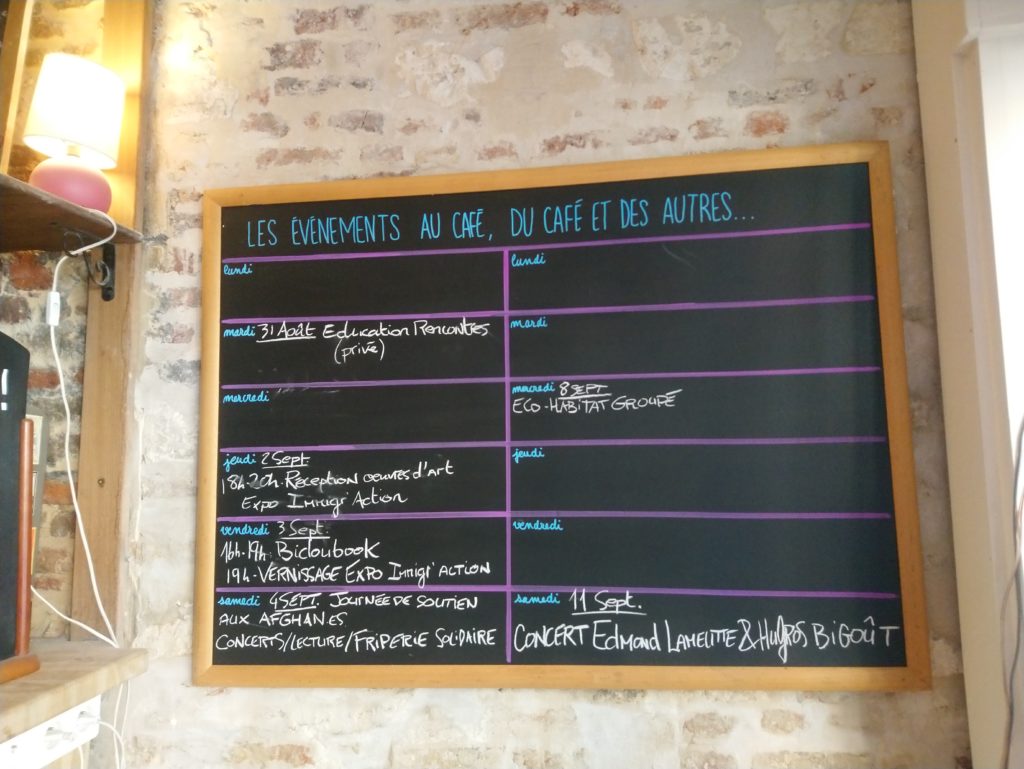 LES ÉVÉNEMENTS AU CAFÉ, DU CAFÉ ET DES AUTRES...
lundi
mardi 31 Août Education Rencontres
(privé)
mercredi
jeudi 2 Sept
18h-20h. Réception oeuvres d'art
Expo Immigr'Action
vendredi 3 Sept.
16h-19h Bicloubook
19h-VERNISSAGE EXPO Immigr'ACTION
samedi 4 SEPT. JOURNÉE DE SOUTIEN
AUX AFGHANES
CONCERTS/LECTURE/FRIPERIE SOLIDAIRE
lundi
mardi
mercredi 8 SEPT
ECO-HABITAT GROUPÉ
jeudi
vendredi
samedi 11 Sept.
CONCERT Edmond LAMELITTE & BiGOÛT